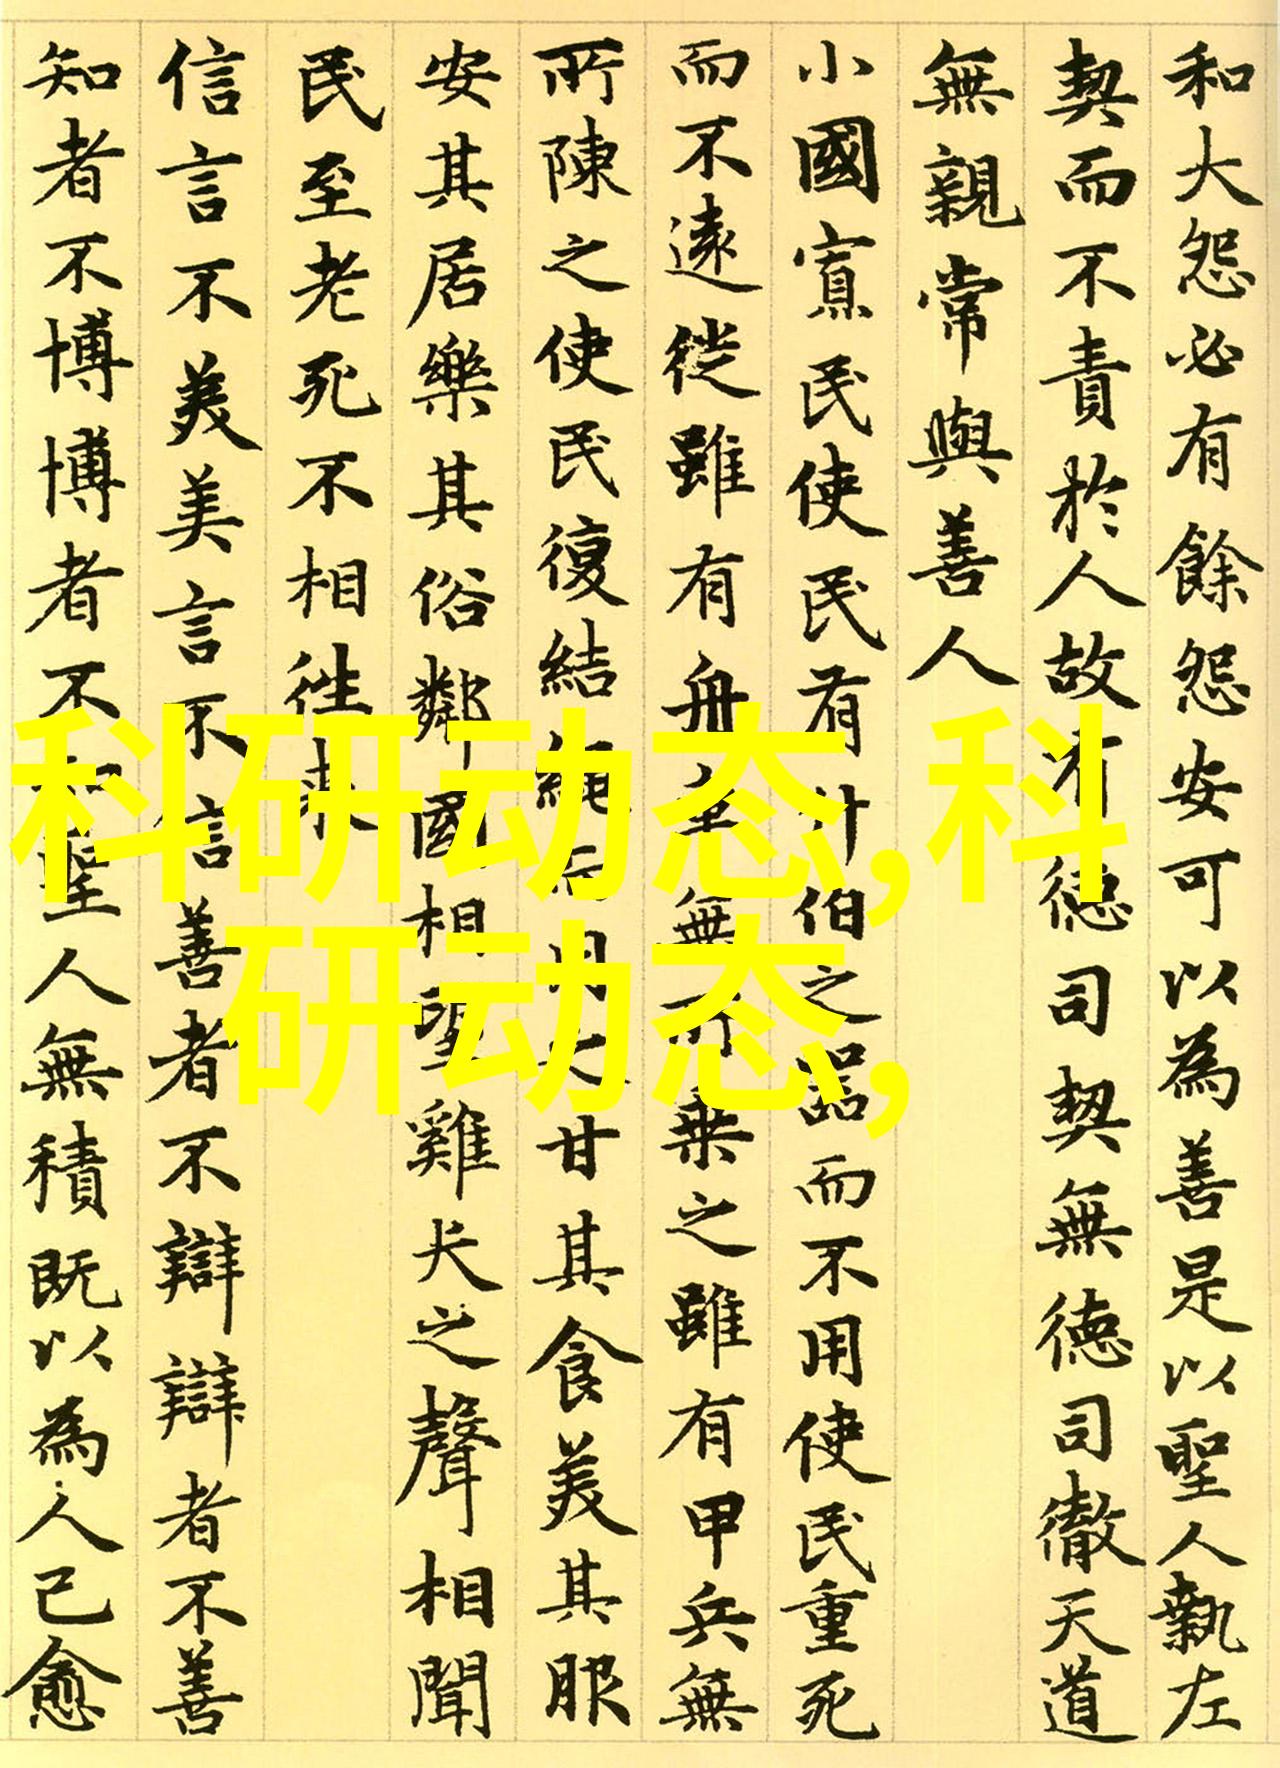 和大怨必有餘怨安可以為善是以聖人執左
契而不責於人故有德司契無德司徹天道
無親常與善人
小國寡民使民有什伯之器而不用使民重死
而不遠徙雖有舟無所乘之雖有甲兵無
所陳之使民復結繩而用之甘其食美其服
安其居樂其俗鄰國相望雞犬之聲相聞
民至老死不相往來
信言不美美言不信善者不辯辯者不善
知者不博博者不知聖人無積既以為人己愈
科研动态,科
研动态,